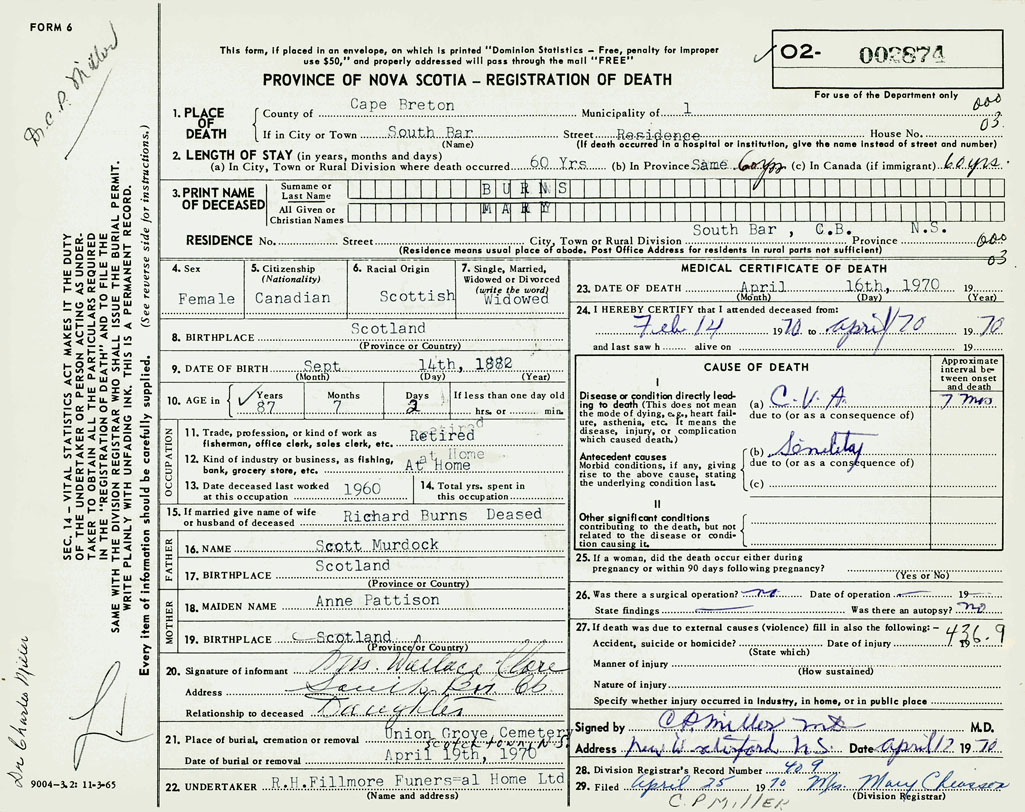 FORM 6
Dr. C. P. Miller
This form, if placed in an envelope, on which is printed "Dominion Statistics – Free, penalty for improper
use $50," and properly addressed will pass through the mail "FREE"
PROVINCE OF NOVA SCOTIA – REGISTRATION OF DEATH
O2- 002874
For use of the Department only
000
03.
1. PLACE OF DEATH
County of Cape Breton Municipality of 1
If in City or Town South Bar Street Residence House No.
(Name) (If death occurred in a hospital or institution, give the name instead of street and number)
2. LENGTH OF STAY (in years, months and days)
(a) In City, Town or Rural Division where death occurred 60 Yrs (b) In Province Same 60 yrs (c) In Canada (if immigrant) 60 yrs.
3. PRINT NAME OF DECEASED
Surname or Last Name BURNS
All Given or Christian Names MARY
South Bar , C.B. N.S.
RESIDENCE No. Street City, Town or Rural Division Province
(Residence means usual place of abode. Post Office Address for residents in rural parts not sufficient)
000
03
4. Sex Female
5. Citizenship (Nationality) Canadian
6. Racial Origin Scottish
7. Single, Married, Widowed or Divorced (write the word) Widowed
8. BIRTHPLACE Scotland
(Province or Country)
9. DATE OF BIRTH Sept 14th, 1882
(Month) (Day) (Year)
10. AGE in Years 87 Months 7 Days 2 If less than one day old
hrs. or min.
OCCUPATION
11. Trade, profession, or kind of work as
fisherman, office clerk, sales clerk, etc. Retired
12. Kind of industry or business, as fishing,
bank, grocery store, etc. At Home
13. Date deceased last worked
at this occupation 1960
14. Total yrs. spent in
this occupation
15. If married give name of wife
or husband of deceased Richard Burns Deased
FATHER
16. NAME Scott Murdock
17. BIRTHPLACE Scotland
(Province or Country)
MOTHER
18. MAIDEN NAME Anne Pattison
19. BIRTHPLACE Scotland
(Province or Country)
20. Signature of informant Mrs. Wallace
Address South Bar CB
Relationship to deceased Daughter
21. Place of burial, cremation or removal Union Grove, Cemetery
Scotch town, N.S.
Date of burial or removal April 19th, 1970
22. UNDERTAKER R.H.Fillmore Funers=al Home Ltd
(Name and address)
MEDICAL CERTIFICATE OF DEATH
23. DATE OF DEATH April 16th, 1970 19
(Month) (Day) (Year)
24. I HEREBY CERTIFY that I attended deceased from:
Feb 14 1970 to april/70 1970
and last saw h alive on 19
CAUSE OF DEATH
Approximate interval between onset and death
I
Disease or condition directly leading to death (This does not mean
the mode of dying, e.g., heart failure, asthenia, etc. It means the
disease, injury, or complication
which caused death.)
(a) C.V.A. 7 mos
due to (or as a consequence of)
Antecedent causes
Morbid conditions, if any, giving
rise to the above cause, stating
the underlying condition last.
(b) Senility
due to (or as a consequence of)
(c)
II
Other significant conditions
contributing to the death, but not
related to the disease or condition causing it.
25. If a woman, did the death occur either during
pregnancy or within 90 days following pregnancy?
(Yes or No)
26. Was there a surgical operation? no Date of operation 19
State findings Was there an autopsy? no
27. If death was due to external causes (violence) fill in also the following: – 436.9
Accident, suicide or homicide? Date of injury 19
(State which)
Manner of injury
(How sustained)
Nature of injury
Specify whether injury occurred in industry, in home, or in public place
Signed by C P Miller md M.D.
Address New Waterford N.S. Date april 17 1970
28. Division Registrar's Record Number 409
29. Filed April 25 1970 Mrs. Mary Chiasson
(Division Registrar)
C. P MILLER
SEC. 14 – VITAL STATISTICS ACT MAKES IT THE DUTY
OF THE UNDERTAKER OR PERSON ACTING AS UNDER-
TAKER TO OBTAIN ALL THE PARTICULARS REQUIRED
IN THE "REGISTRATION OF DEATH" AND TO FILE THE
SAME WITH THE DIVISION REGISTRAR WHO SHALL ISSUE THE BURIAL PERMIT.
WRITE PLAINLY WITH UNFADING INK. THIS IS A PERMANENT RECORD.
Every item of information should be carefully supplied. (See reverse side for instructions.)
Dr Charles Miller
9004–3.2: 11-3-65